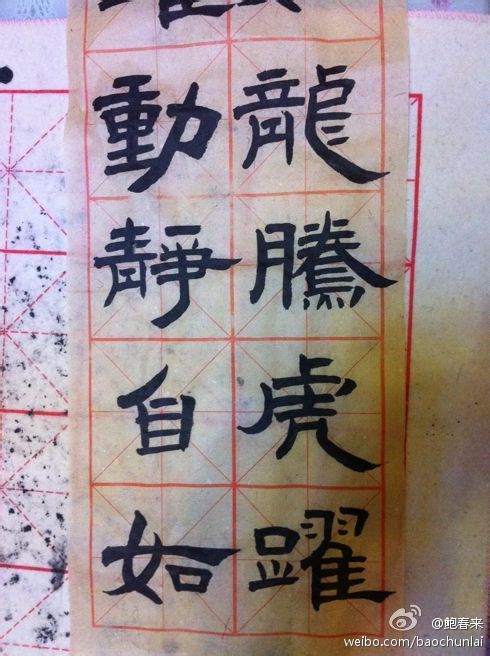 龍騰虎躍
動靜自如
@鲍春来
weibo.com/baochunlai